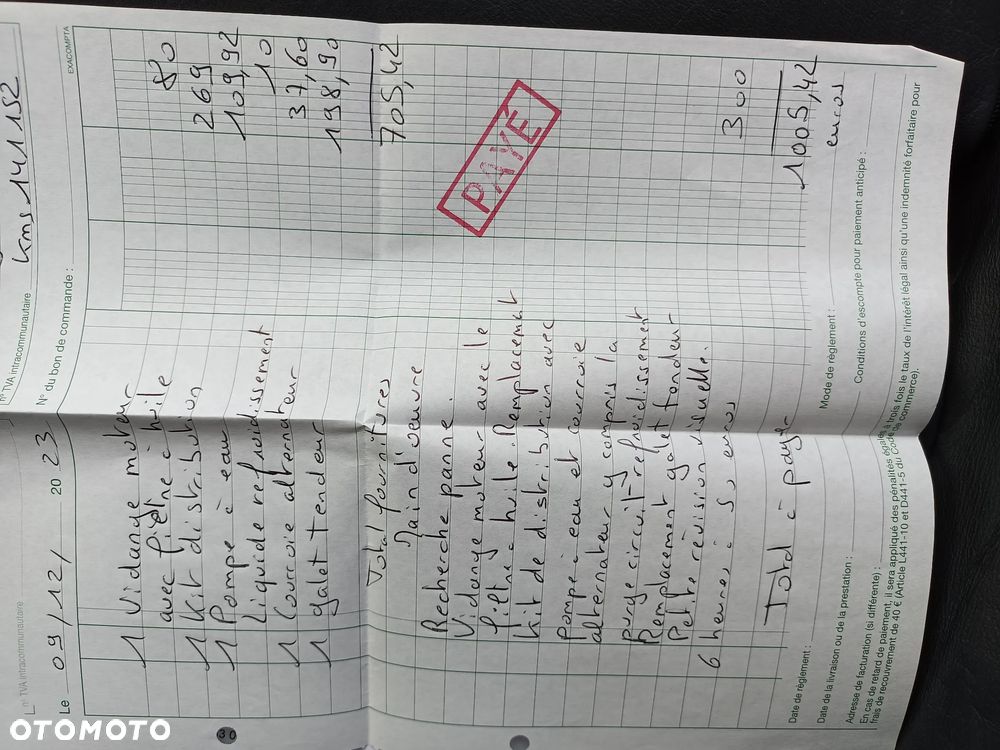 N° TVA intracommunautaire
L n° TVA intracommunautaire
kms 141 152
Le 09/12/ 20 23
N° du bon de commande :
EXACOMPTA
1 Vidange moteur
avec filtre à huile 80
1 Kit distribution 269
1 Pompe à eau 109,92
Liquide refroidissement 10
1 Courroie alternateur 37,60
1 galet tendeur 198,90
Total fournitures 705,42
Main d'oeuvre
Recherche panne
Vidange moteur avec le
filtre à huile. Remplacement
Kit de distribution avec
pompe à eau et courroie
alternateur y compris la
purge circuit refroidissement
Remplacement galet tendeur
Petite révision visuelle.
6 heures à 50 euros 300
PAYÉ
Total à payer 1005,42
euros
Date de règlement :
Mode de règlement :
Date de la livraison ou de la prestation :
Conditions d'escompte pour paiement anticipé :
Adresse de facturation (si différente) :
En cas de retard de paiement, il sera appliqué des pénalités égales à trois fois le taux de l'intérêt légal ainsi qu'une indemnité forfaitaire pour
frais de recouvrement de 40 € (Article L441-10 et D441-5 du Code de commerce).
30
OTOMOTO